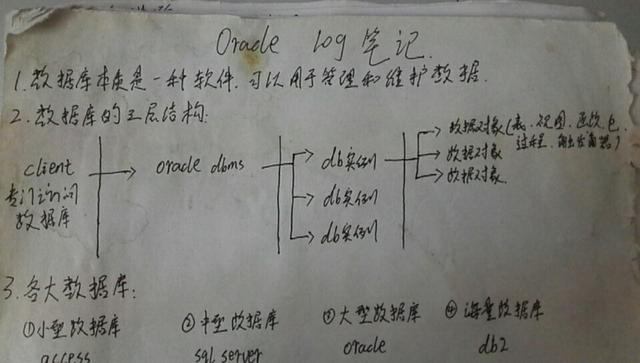 Oracle log 笔记.
1. 数据库本质是一种软件. 可以用于管理和维护数据.
2. 数据库的三层结构:
client
专门访问
数据库
oracle dbms
db实例
db实例
db实例
数据对象(表、视图、函数、包、
过程、触发器)
数据对象
数据对象
3. 各大数据库:
①小型数据库 ②中型数据库 ③大型数据库 ④海量数据库
access sql server oracle db2